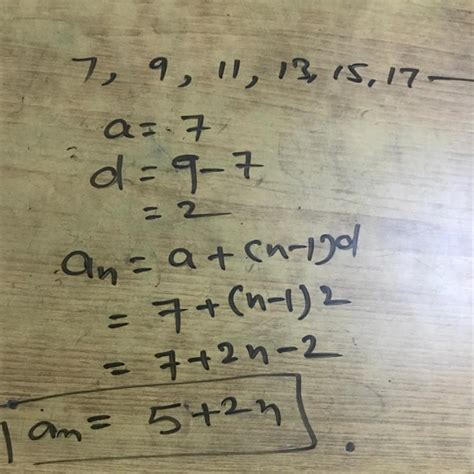 7, 9, 11, 13, 15, 17 —
a = 7
d = 9-7
= 2
an = a + (n-1)d
= 7+(n-1)2
= 7+2n-2
an = 5+2n